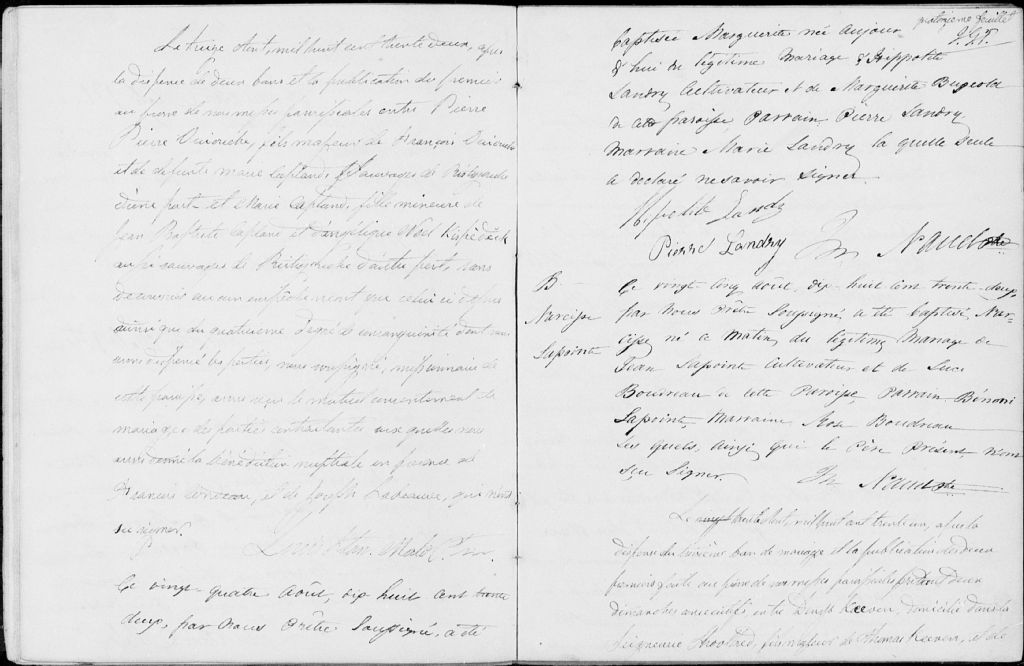 Le treize Août, mil huit cent trente deux, après
la dispense de deux bans et la publication du premier
au prône de nos messes paroissiales entre Pierre
Pierre fils majeur de François
et de defunte Marie Caplan, Sauvages de Ristigouche
d'une part et Marie Caplan, fille mineure de
Jean Baptiste Caplan et d'angélique
aussi sauvages de Ristigouche d'autre part, sans
découvrir aucun empêchement que celui ci dessus
ainsi que du quatrieme degré de consanguinité dont nous
avons dispensé les parties, nous soussigné, missionnaire de
cette paroisse, avons reçu le mutuel consentement de
mariage des parties contractantes aux quelles nous
avons donné la bénédiction nuptiale en présence de
François et de Joseph qui n'ont
su signer.
Louis Stan. Malo Ptre
Ce vingt quatre Août, dix huit cent trente
deux, par Nous Prêtre Soussigné, a été
feuillet
baptisée Marguerite née aujour
d'hui du légitime Mariage d'Hippolite
Landry Cultivateur & de Marguerite Bujeold
de cette paroisse, Parrain Pierre Landry,
Marraine Marie Landry la quelle seule
a declaré ne savoir signer.
Hipolite Landry
Pierre Landry
B.
Narcisse
Lapointe
Ce vingt cinq Août, dix huit cent trente-deux,
par Nous Prêtre Soussigné, a été baptisé, Nar-
cisse né ce matin, du légitime Mariage de
Jean Lapointe Cultivateur et de Luce
Boudreau de cette Paroisse, Parrain Bénoni
Lapointe Marraine Rose Boudreau
Les quels, ainsi que le Père Présent, n'ont
su signer.
Le vingt trente Août, mil huit cent trente deux, après la
dispense du troisième ban de mariage et la publication des deux
premiers faite au prône de nos messes paroissiales pendant deux
dimanches consécutifs, entre Keeven, domicilié dans la
Seigneurie fils majeur de Thomas Keeven, et de